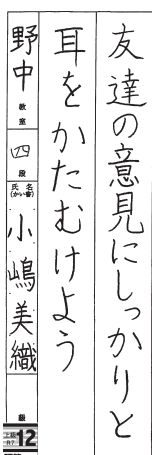 友達の意見にしっかりと
耳をかたむけよう
野中 教室 四 段 氏名(かい書) 小嶋美織 級
12